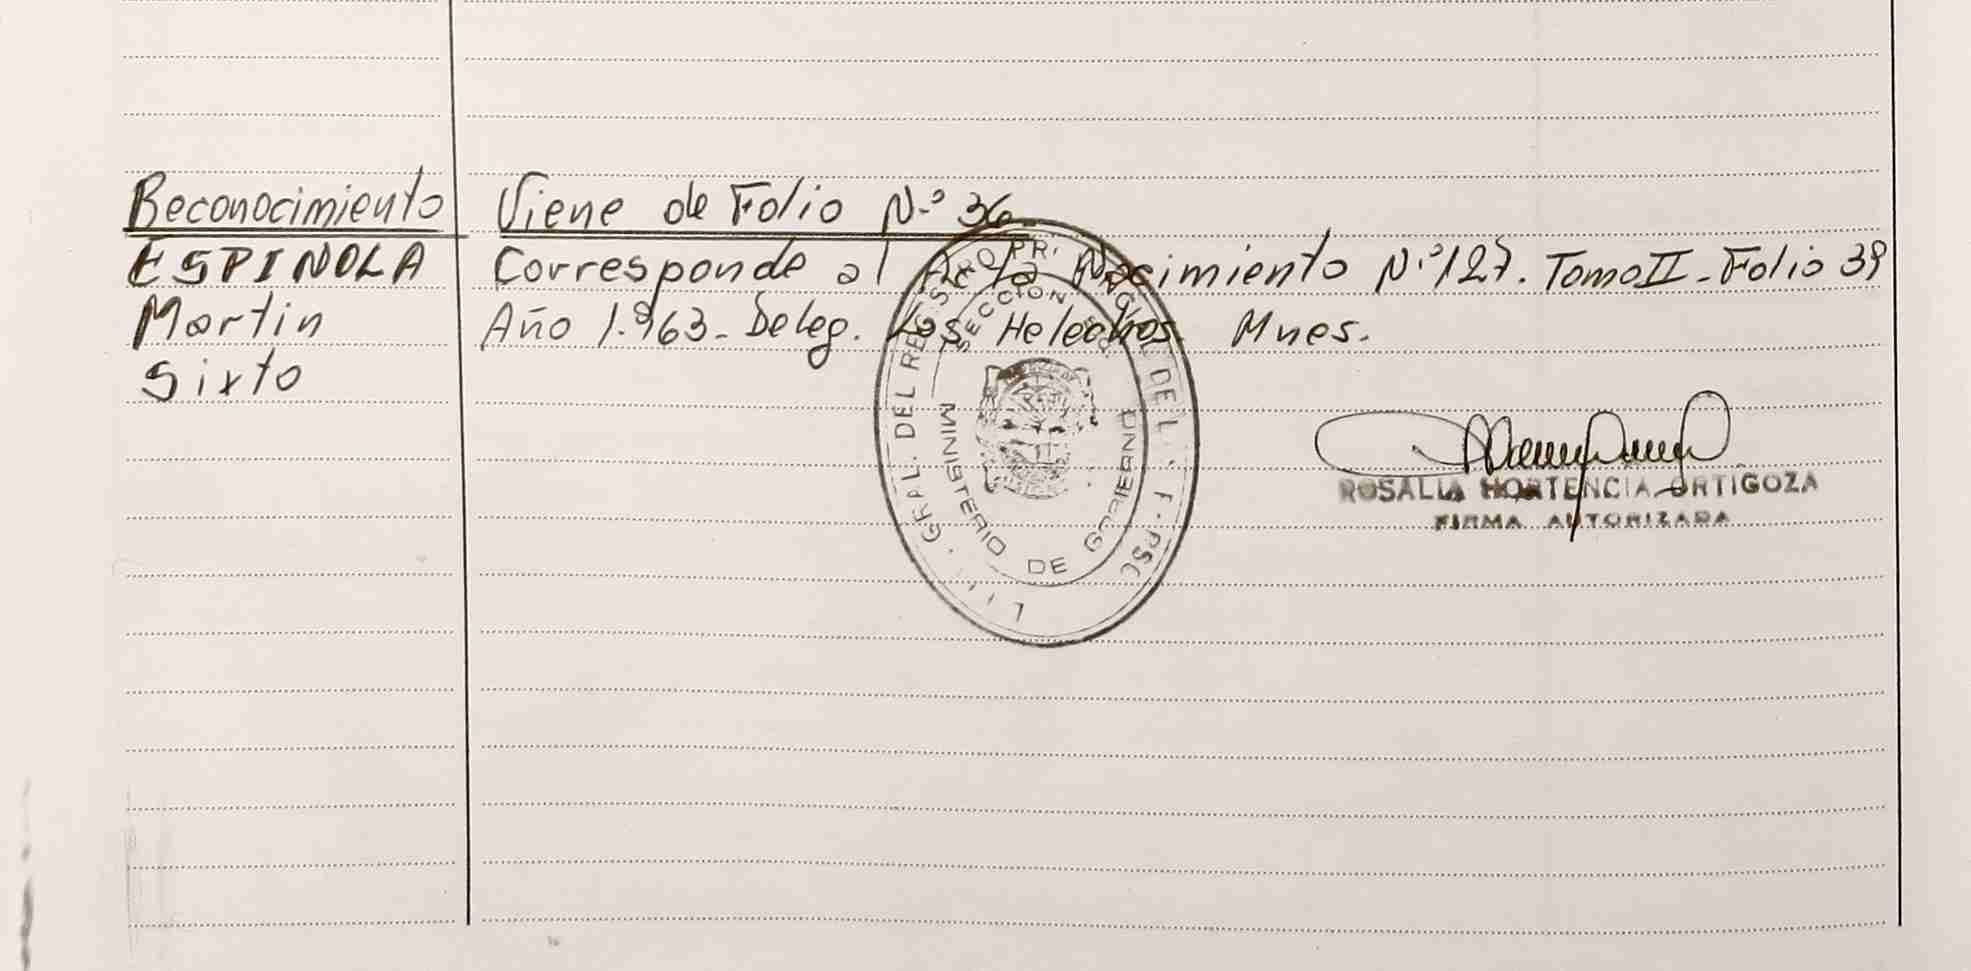 Reconocimiento
ESPINOLA
Martin
Sixto
Viene de Folio N.º 36
Corresponde al Acta Nacimiento N.º 127. Tomo II - Folio 39
Año 1.963 - Deleg. Los Helechos. Mnes.
GRAL. DEL REGISTRO PR
DE L
SECCION
MINISTERIO DE GOBIERNO
ROSALIA HORTENCIA ORTIGOZA
FIRMA AUTORIZADA